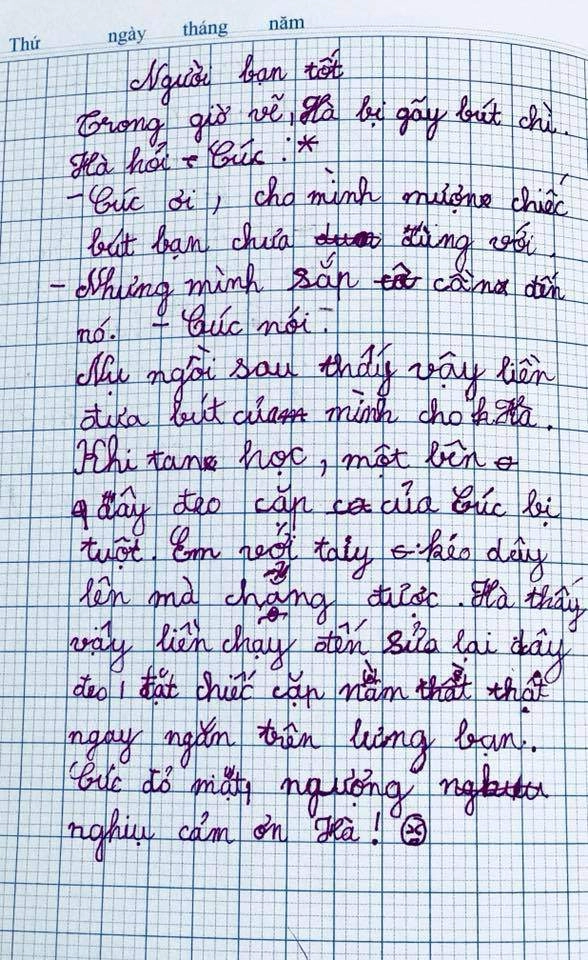 Thứ ngày tháng năm
Người bạn tốt
Trong giờ vẽ, Hà bị gãy bút chì.
Hà hỏi Cúc : *
- Cúc ơi, cho mình mượn chiếc
bút bạn chưa dùng với.
- Nhưng mình sắp cần đến
nó. - Cúc nói.
Nụ ngồi sau thấy vậy liền
đưa bút của mình cho Hà.
Khi tan học, một bên
dây đeo cặp của Cúc bị
tuột. Em với tay kéo dây
lên mà chẳng được. Hà thấy
vậy liền chạy đến sửa lại dây
đeo, đặt chiếc cặp nằm thật
ngay ngắn trên lưng bạn.
Cúc đỏ mặt, ngượng
nghịu cảm ơn Hà!